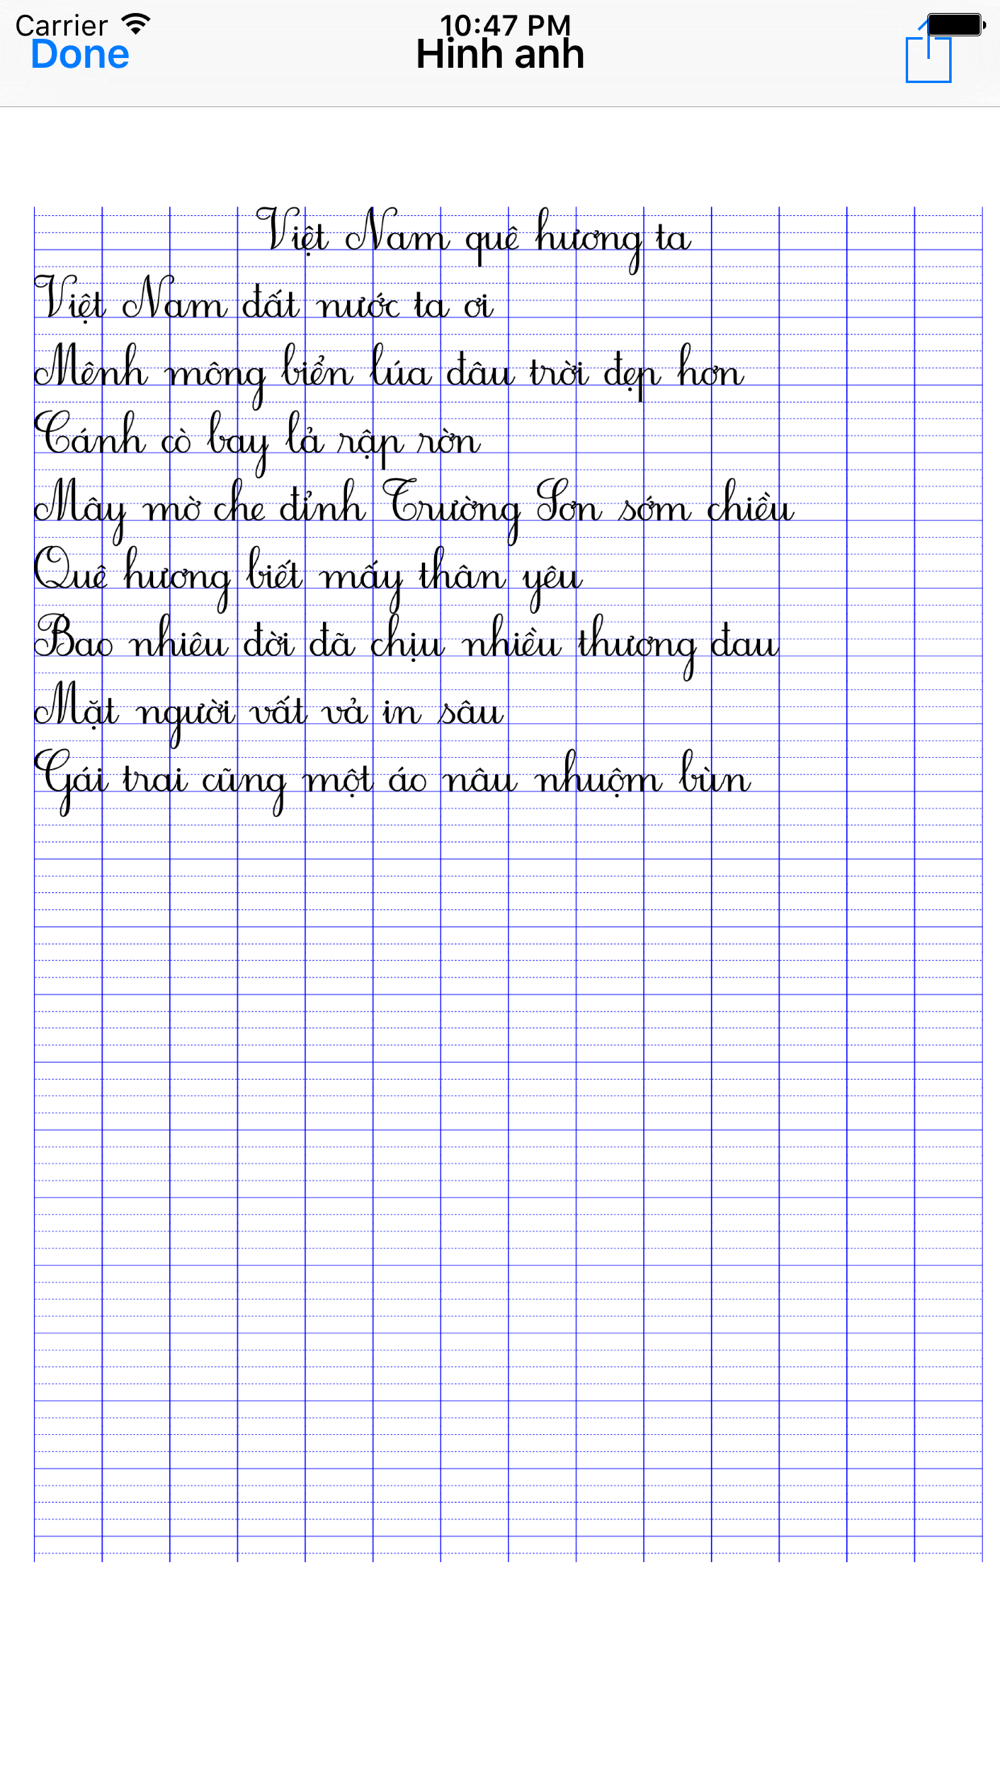 Carrier 10:47 PM
Done Hinh anh
Việt Nam quê hương ta
Việt Nam đất nước ta ơi
Mênh mông biển lúa đâu trời đẹp hơn
Cánh cò bay lả rập rờn
Mây mờ che đỉnh Trường Sơn sớm chiều
Quê hương biết mấy thân yêu
Bao nhiêu đời đã chịu nhiều thương đau
Mặt người vất vả in sâu
Gái trai cũng một áo nâu nhuộm bùn